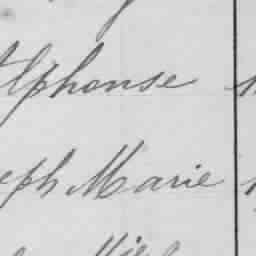 Alphonse
eph Marie